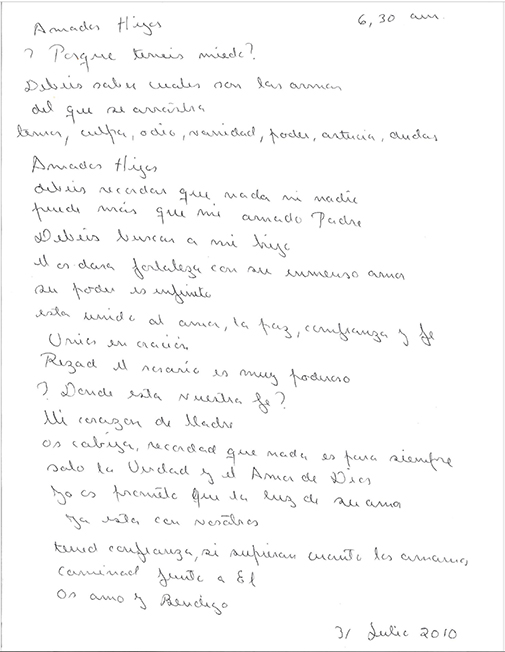 6,30 am.
Amados Hijos
? Porque teneis miedo?
Debéis saber cuales son las armas
del que se arrastra
temor, culpa, odio, vanidad, poder, astucia, dudas
Amados Hijos
debéis recordar que nada ni nadie
puede más que mi amado Padre
Debéis buscar a mi hijo
el os dara fortaleza con su inmenso amor
su poder es infinito
esta unido al amor, la paz, confianza y fe
Unios en oración
Rezad el rosario es muy poderoso
? Donde esta vuestra fe?
Mi corazon de Madre
os cobija, recordad que nada es para siempre
solo la Verdad y el Amor de Dios
yo os prometo que la luz de su amor
ya esta con vosotros
tened confianza, si supieran cuanto los amamos,
caminad junto a El
Os amo y Bendigo
31 Julio 2010